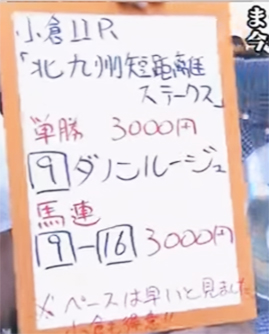 ま今
小倉11R
「北九州短距離
ステークス」
単勝 3000円
9 ダノンルージュ
馬連
9-16 3000円
※ペースは早いと見ました